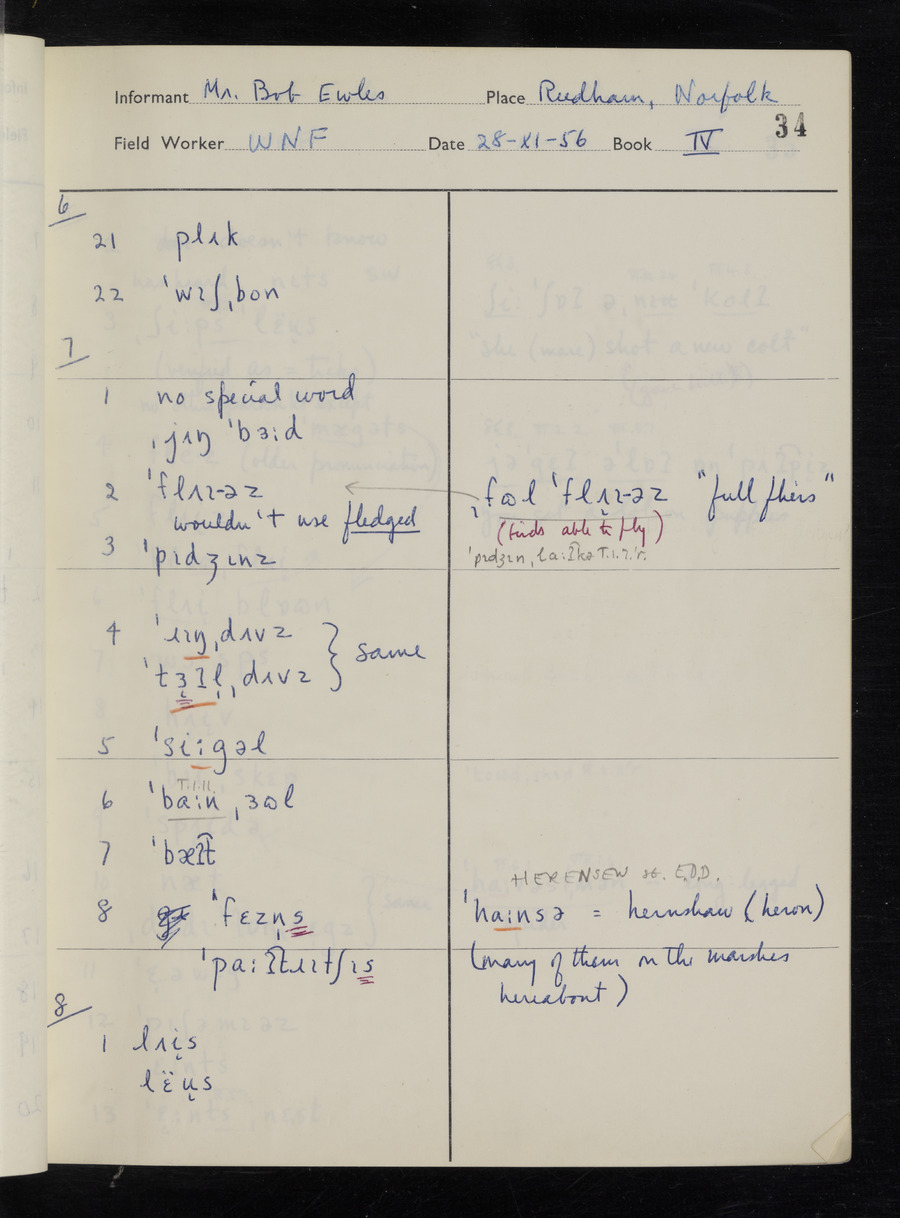 Informant Mr. Bob Ewles Place Reedham, Norfolk
34
Field Worker WNF Date 28-XI-56 Book IV
6
21 plʌk
22 ˈwɪʃˌbon
7
1 no special word
ˌjʌŋ ˈbɜːd
2 ˈflʌɪ-əz
wouldn't use fledged
ˌfʊl ˈflʌɪ-əz "full fliers"
(birds able to fly)
3 ˈpɪdʒɪnz
4 ˈɹɪŋˌdʌvz } same
ˈtɜʔl̩ˌdʌvz
5 ˈsiːgəl
6 ˈbaːnˌɜʊl
7 ˈbæʔt
8 ˈfɛzns
HERENSEW EDD.
ˈhaːnsə = hernshaw (heron)
ˈpaːʔtɹɪtʃɪs
(many of them on the marshes
hereabout)
8
1 lʌɪs
lëʉs